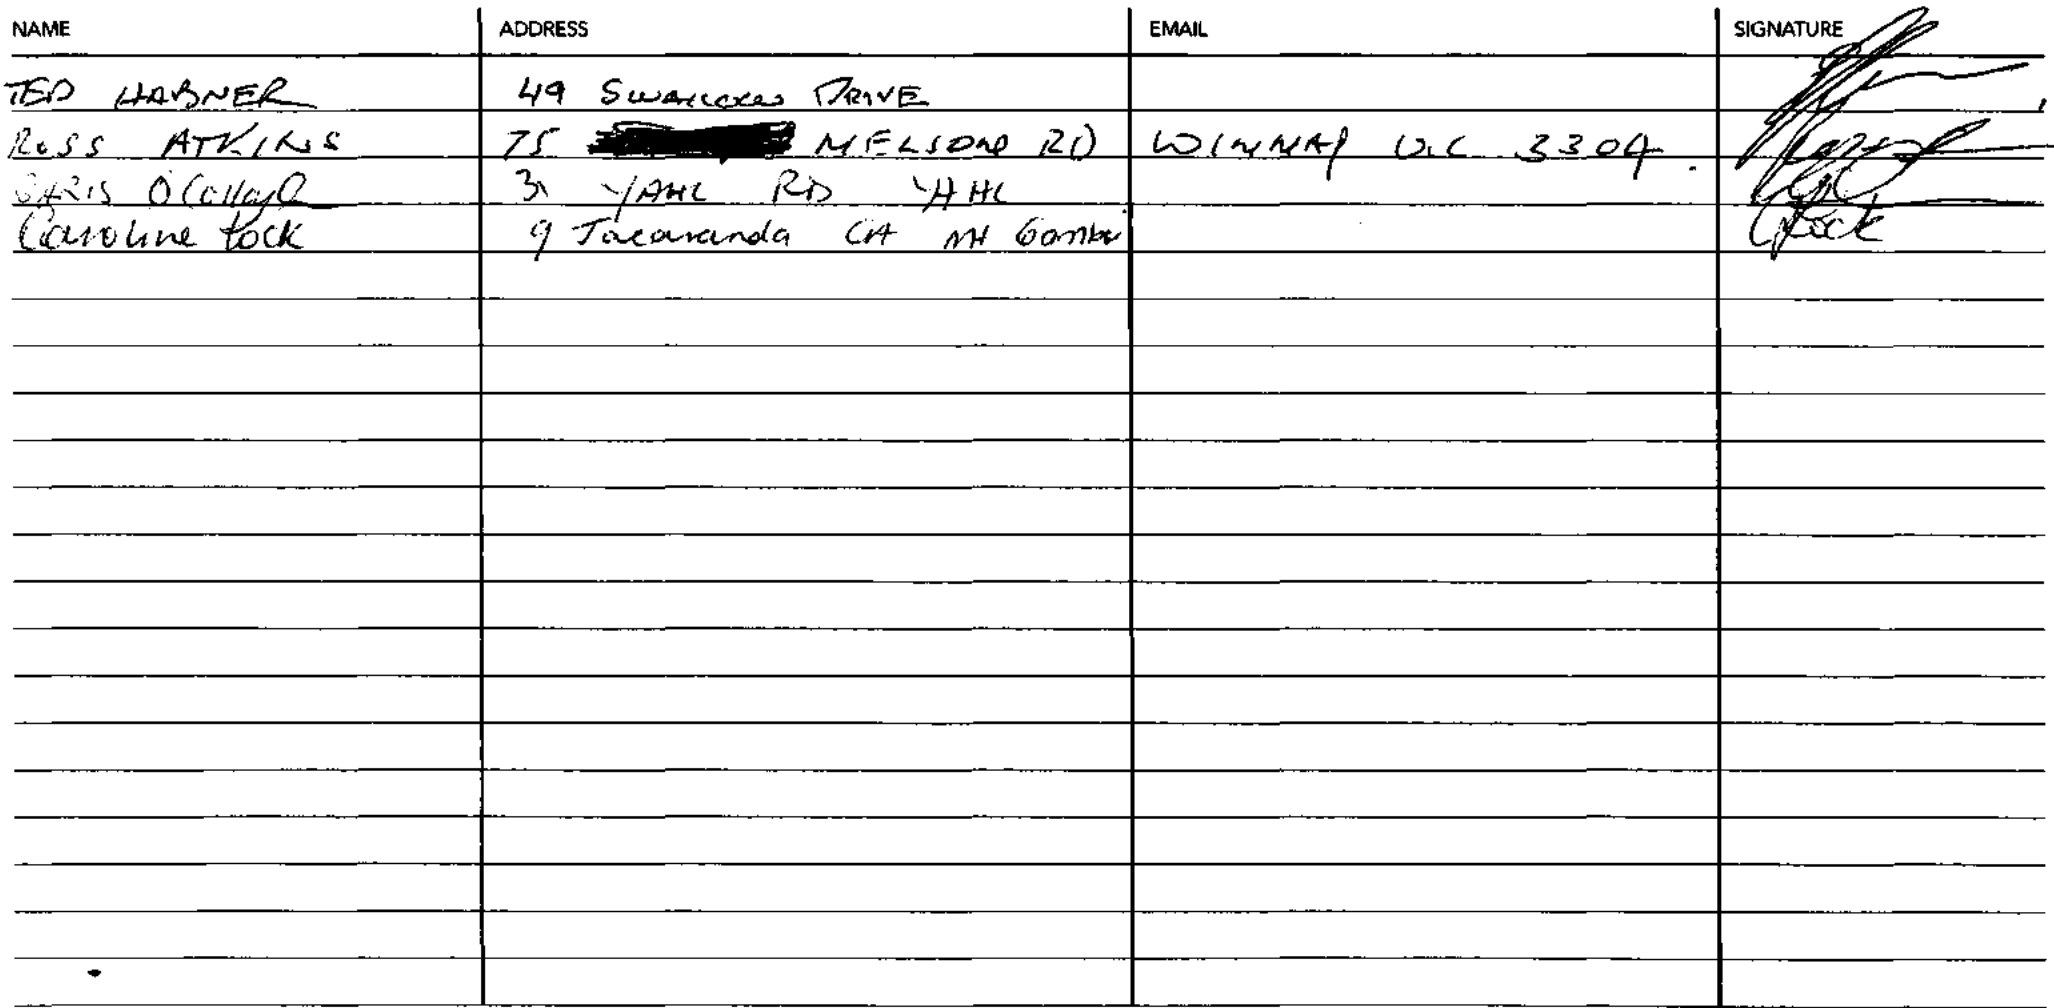 NAME ADDRESS EMAIL SIGNATURE
TED HABNER 49 Swallow DRIVE
ROSS ATKINS 75 NELSON RD WINNAP VIC 3304.
O'Callag 3 YAHL RD YAHL
Caroline Lock 9 Jacaranda Crt Mt Gambier